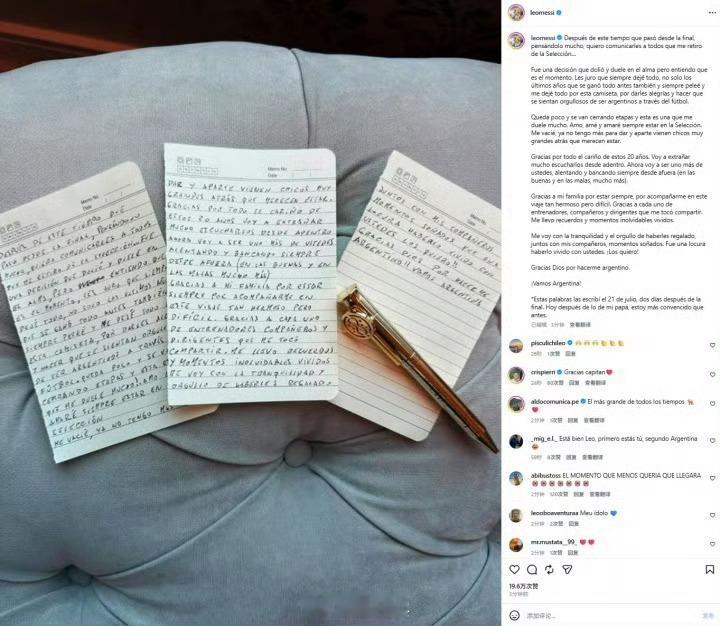 DE ESTE TIEMPO QUE
PASO DESDE LA FINAL, PENSANDOLO
MUCHO, QUIERO COMUNICARLES A TODOS
QUE ME RETIRO DE LA
UNA DECISION QUE DOLIO Y DUELE EN
EL ALMA, PERO ENTIENDO QUE
ES EL MOMENTO. LES JURO QUE SIEMPRE
DEJE TODO, NO SOLO LOS ULTIMOS AÑOS
QUE SE GANO TODO ANTES TAMBIEN
SIEMPRE PELEE Y ME DEJE TODO POR
ESTA CAMISETA, POR DARLES ALEGRIAS
Y HACER QUE SE SIENTAN ORGULLOSOS
DE SER ARGENTINOS A TRAVES DEL
FUTBOL. QUEDA POCO Y SE VAN
CERRANDO ETAPAS Y ESTA ES UNA
QUE ME DUELE MUCHO. AMO, AME Y
AMARE SIEMPRE ESTAR EN LA
SELECCION.
ME VACIE, YA NO TENGO MAS
Memo No.
Date
DAR Y APARTE VIENEN CHICOS MUY
GRANDES ATRAS QUE MERECEN ESTAR.
GRACIAS POR TODO EL CARIÑO DE
ESTOS 20 AÑOS VOY A EXTRAÑAR
MUCHO ESCUCHARLOS DESDE ADENTRO
AHORA VOY A SER UNO MAS DE USTEDES
ALENTANDO Y BANCANDO SIEMPRE
DESDE AFUERA (EN LAS BUENAS Y EN
LAS MALAS MUCHO MAS)
GRACIAS A MI FAMILIA POR ESTAR
SIEMPRE POR ACOMPAÑARME EN
ESTE VIAJE TAN HERMOSO PERO
DIFICIL. GRACIAS A CADA UNO
DE ENTRENADORES COMPAÑEROS Y
DIRIGENTES QUE ME TOCO
COMPARTIR. ME LLEVO RECUERDOS
Y MOMENTOS INOLVIDABLES VIVIDOS
ME VOY CON LA TRANQUILIDAD Y
ORGULLO DE HABERLES REGALADO
Memo No.
Date
JUNTOS CON MIS COMPAÑEROS
MOMENTOS SOÑADOS FUE UNA
LOCURA HABERLO VIVIDO CON
USTEDES LOS QUIERO!!
GRACIAS DIOS POR HACERME
ARGENTINO!! VAMOS ARGENTINA
leomessi
leomessi Después de este tiempo que pasó desde la final,
pensándolo mucho, quiero comunicarles a todos que me retiro
de la Selección...
Fue una decisión que dolió y duele en el alma pero entiendo que
es el momento. Les juro que siempre dejé todo, no solo los
últimos años que se ganó todo antes también y siempre peleé y
me dejé todo por esta camiseta, por darles alegrías y hacer que
se sientan orgullosos de ser argentinos a través del fútbol.
Queda poco y se van cerrando etapas y esta es una que me
duele mucho. Amo, amé y amaré siempre estar en la Selección.
Me vacié, ya no tengo más para dar y aparte vienen chicos muy
grandes atrás que merecen estar.
Gracias por todo el cariño de estos 20 años. Voy a extrañar
mucho escucharlos desde adentro. Ahora voy a ser uno más de
ustedes, alentando y bancando siempre desde afuera (en las
buenas y en las malas, mucho más).
Gracias a mi familia por estar siempre, por acompañarme en este
viaje tan hermoso pero difícil. Gracias a cada uno de
entrenadores, compañeros y dirigentes que me tocó compartir.
Me llevo recuerdos y momentos inolvidables vividos.
Me voy con la tranquilidad y el orgullo de haberles regalado,
juntos con mis compañeros, momentos soñados. Fue una locura
haberlo vivido con ustedes. ¡Los quiero!
Gracias Dios por hacerme argentino.
¡Vamos Argentina!
*Estas palabras las escribí el 21 de julio, dos días después de la
final. Hoy después de lo de mi papá, estoy más convencido que
antes.
已编辑 3分钟 查看翻译
pisculichileo
26秒 1次赞 回复
crispierri Gracias capitan❤️
2分钟 80次赞 回复 查看翻译
aldocomunica.pe El más grande de todos los tiempos 🐐
❤️
2分钟 1次赞 回复 查看翻译
_mig_e.l._ Está bien Leo, primero estás tú, segundo Argentina
59秒 8次赞 回复 查看翻译
abibustoss EL MOMENTO QUE MENOS QUERIA QUE LLEGARA
2分钟 120次赞 回复 查看翻译
leooboaventuraa Meu ídolo 💙
2分钟 2次赞 回复
mr.mustata__99_ ❤️❤️
2分钟 1次赞 回复
19.6万次赞
3分钟前
添加评论...
发布